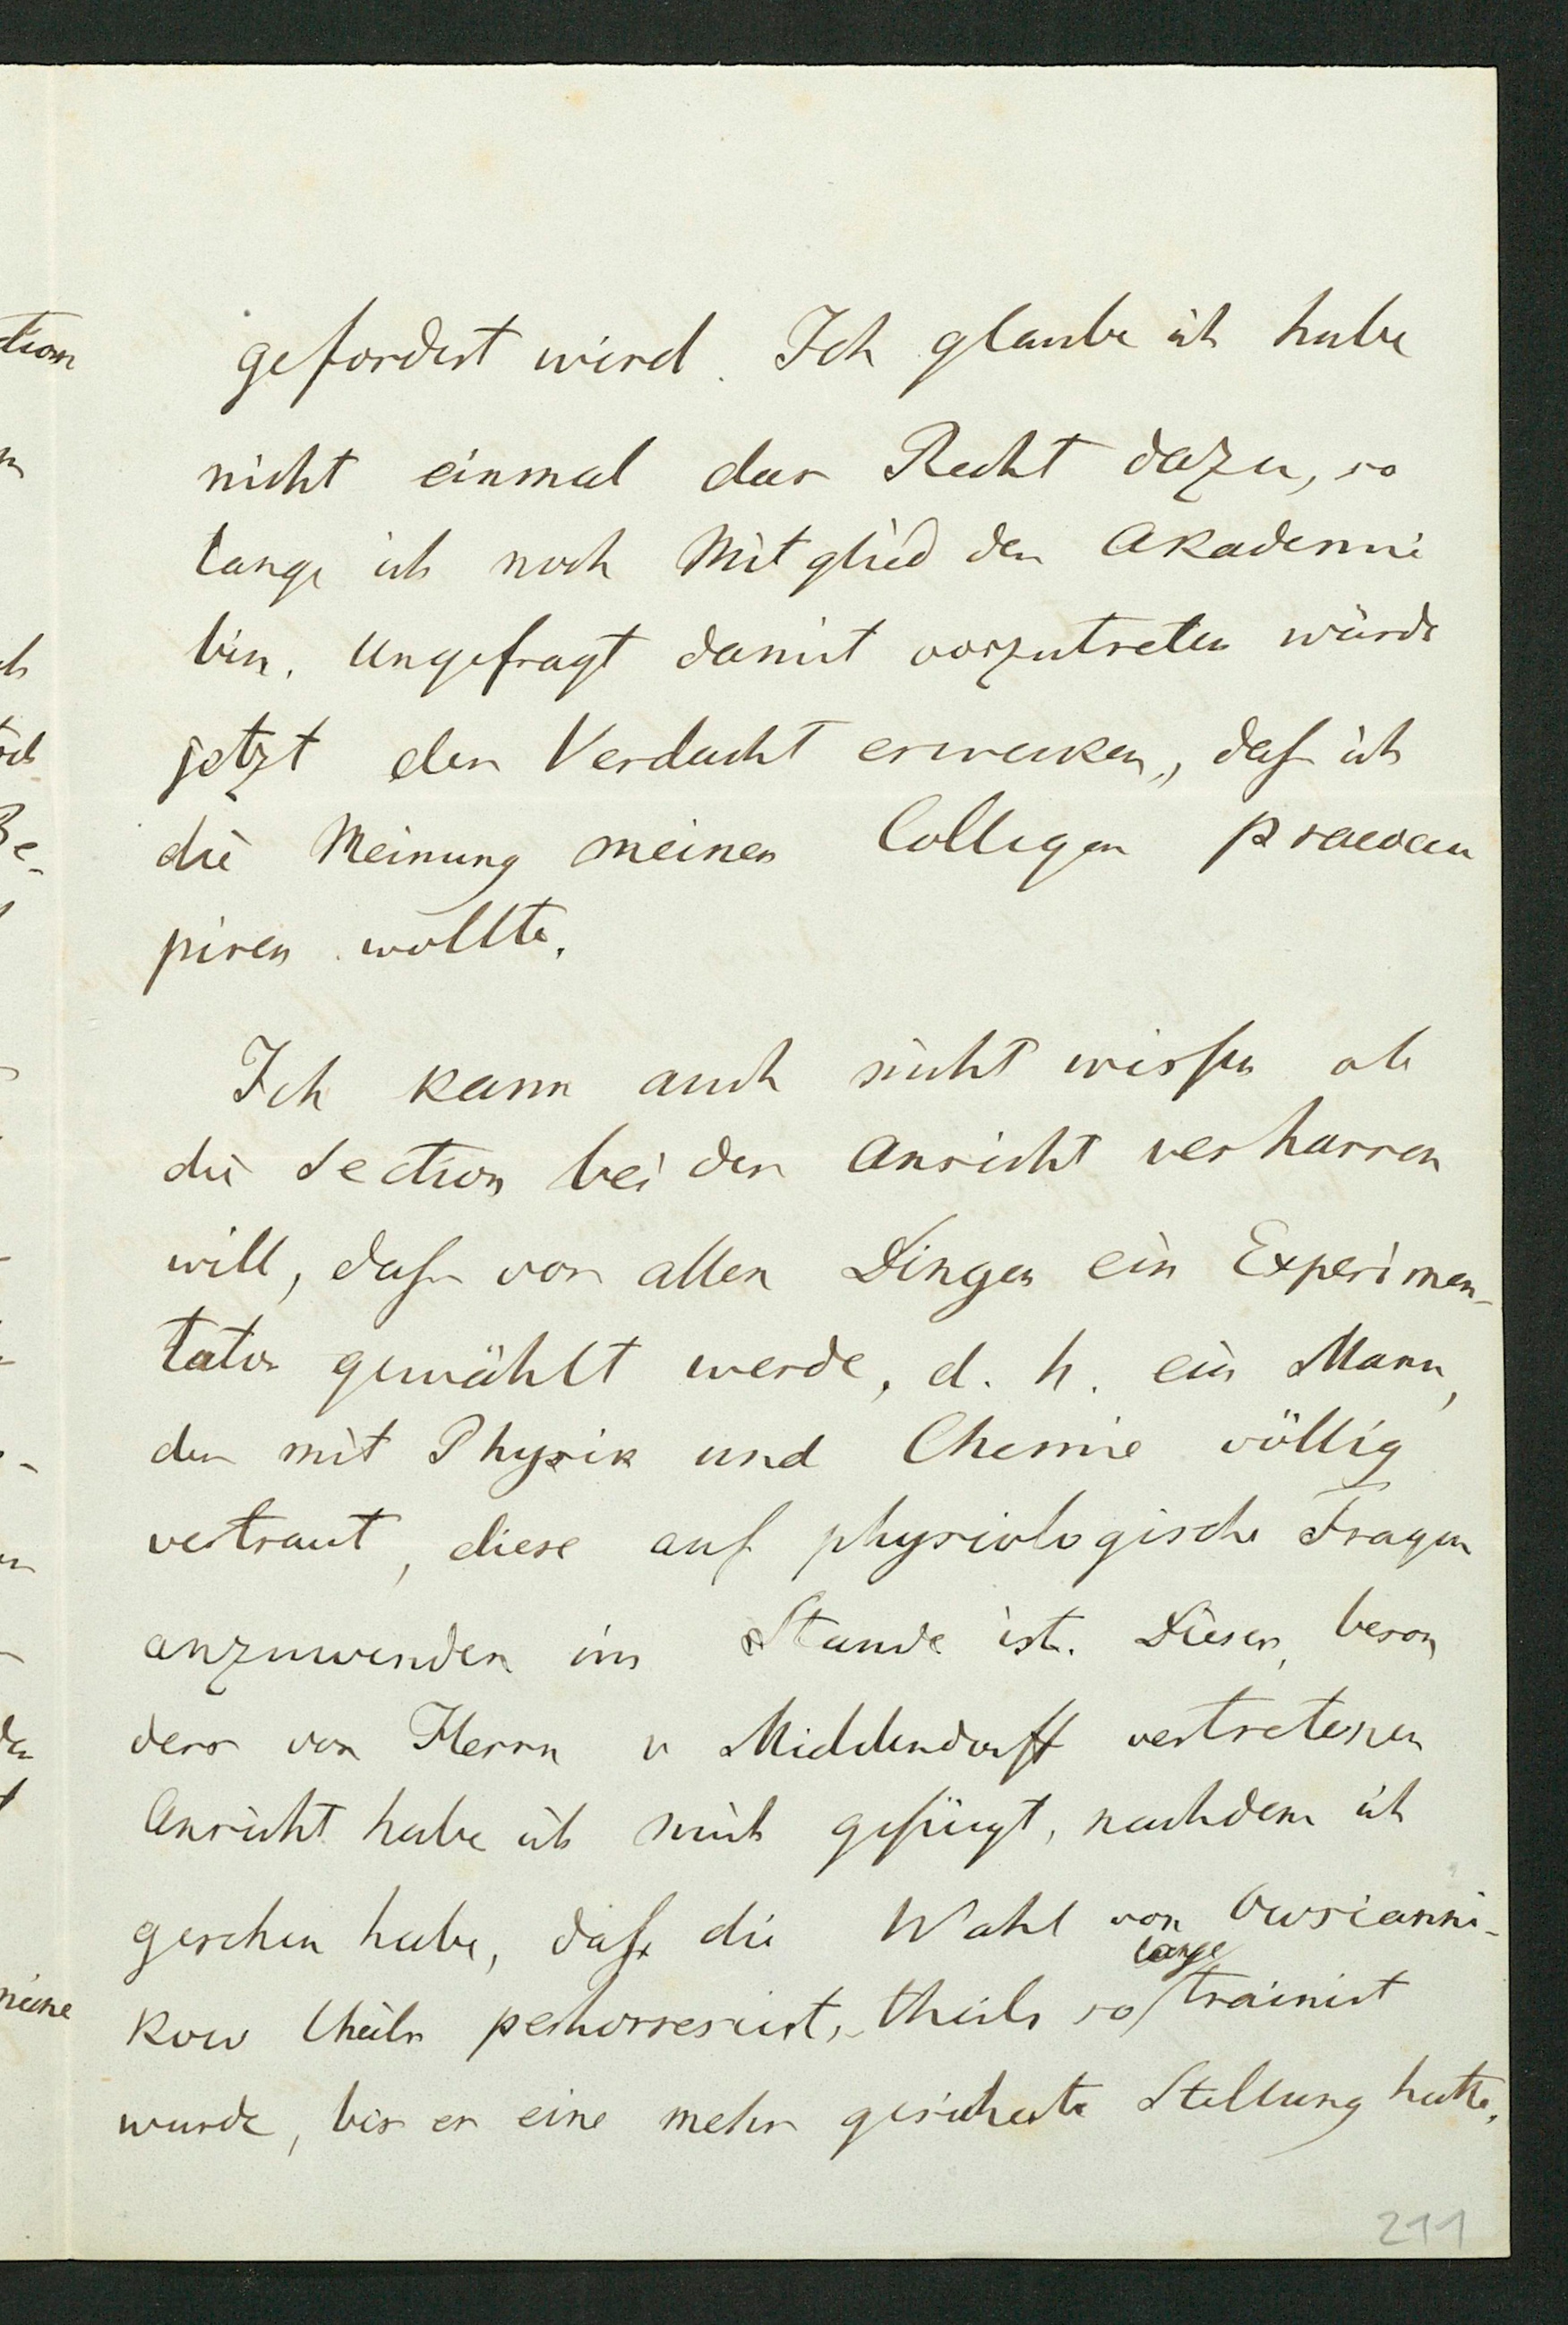 gefordert wird. Ich glaube ich habe
nicht einmal das Recht dazu, so
lange ich noch Mitglied der Akademie
bin. Ungefragt damit vorzutreten würde
jetzt den Verdacht erwecken, daß ich
die Meinung meiner Collegen praeoccu
piren wollte.
Ich kann auch nicht wissen ob
die Section bei der Ansicht verharren
will, daß vor allen Dingen ein Experimen-
tator gewählt werde, d. h. ein Mann,
der mit Physik und Chemie völlig
vertraut, diese auf physiologische Fragen
anzuwenden im Stande ist. Dieser, beson
ders von Herrn v Middendorff vertretenen
Ansicht habe ich mich gefügt, nachdem ich
gesehen habe, daß die Wahl von Owsianni-
kow theils perhorrescirt, theils so lange trainirt
wurde, bis er eine mehr gesicherte Stellung hatte.
211